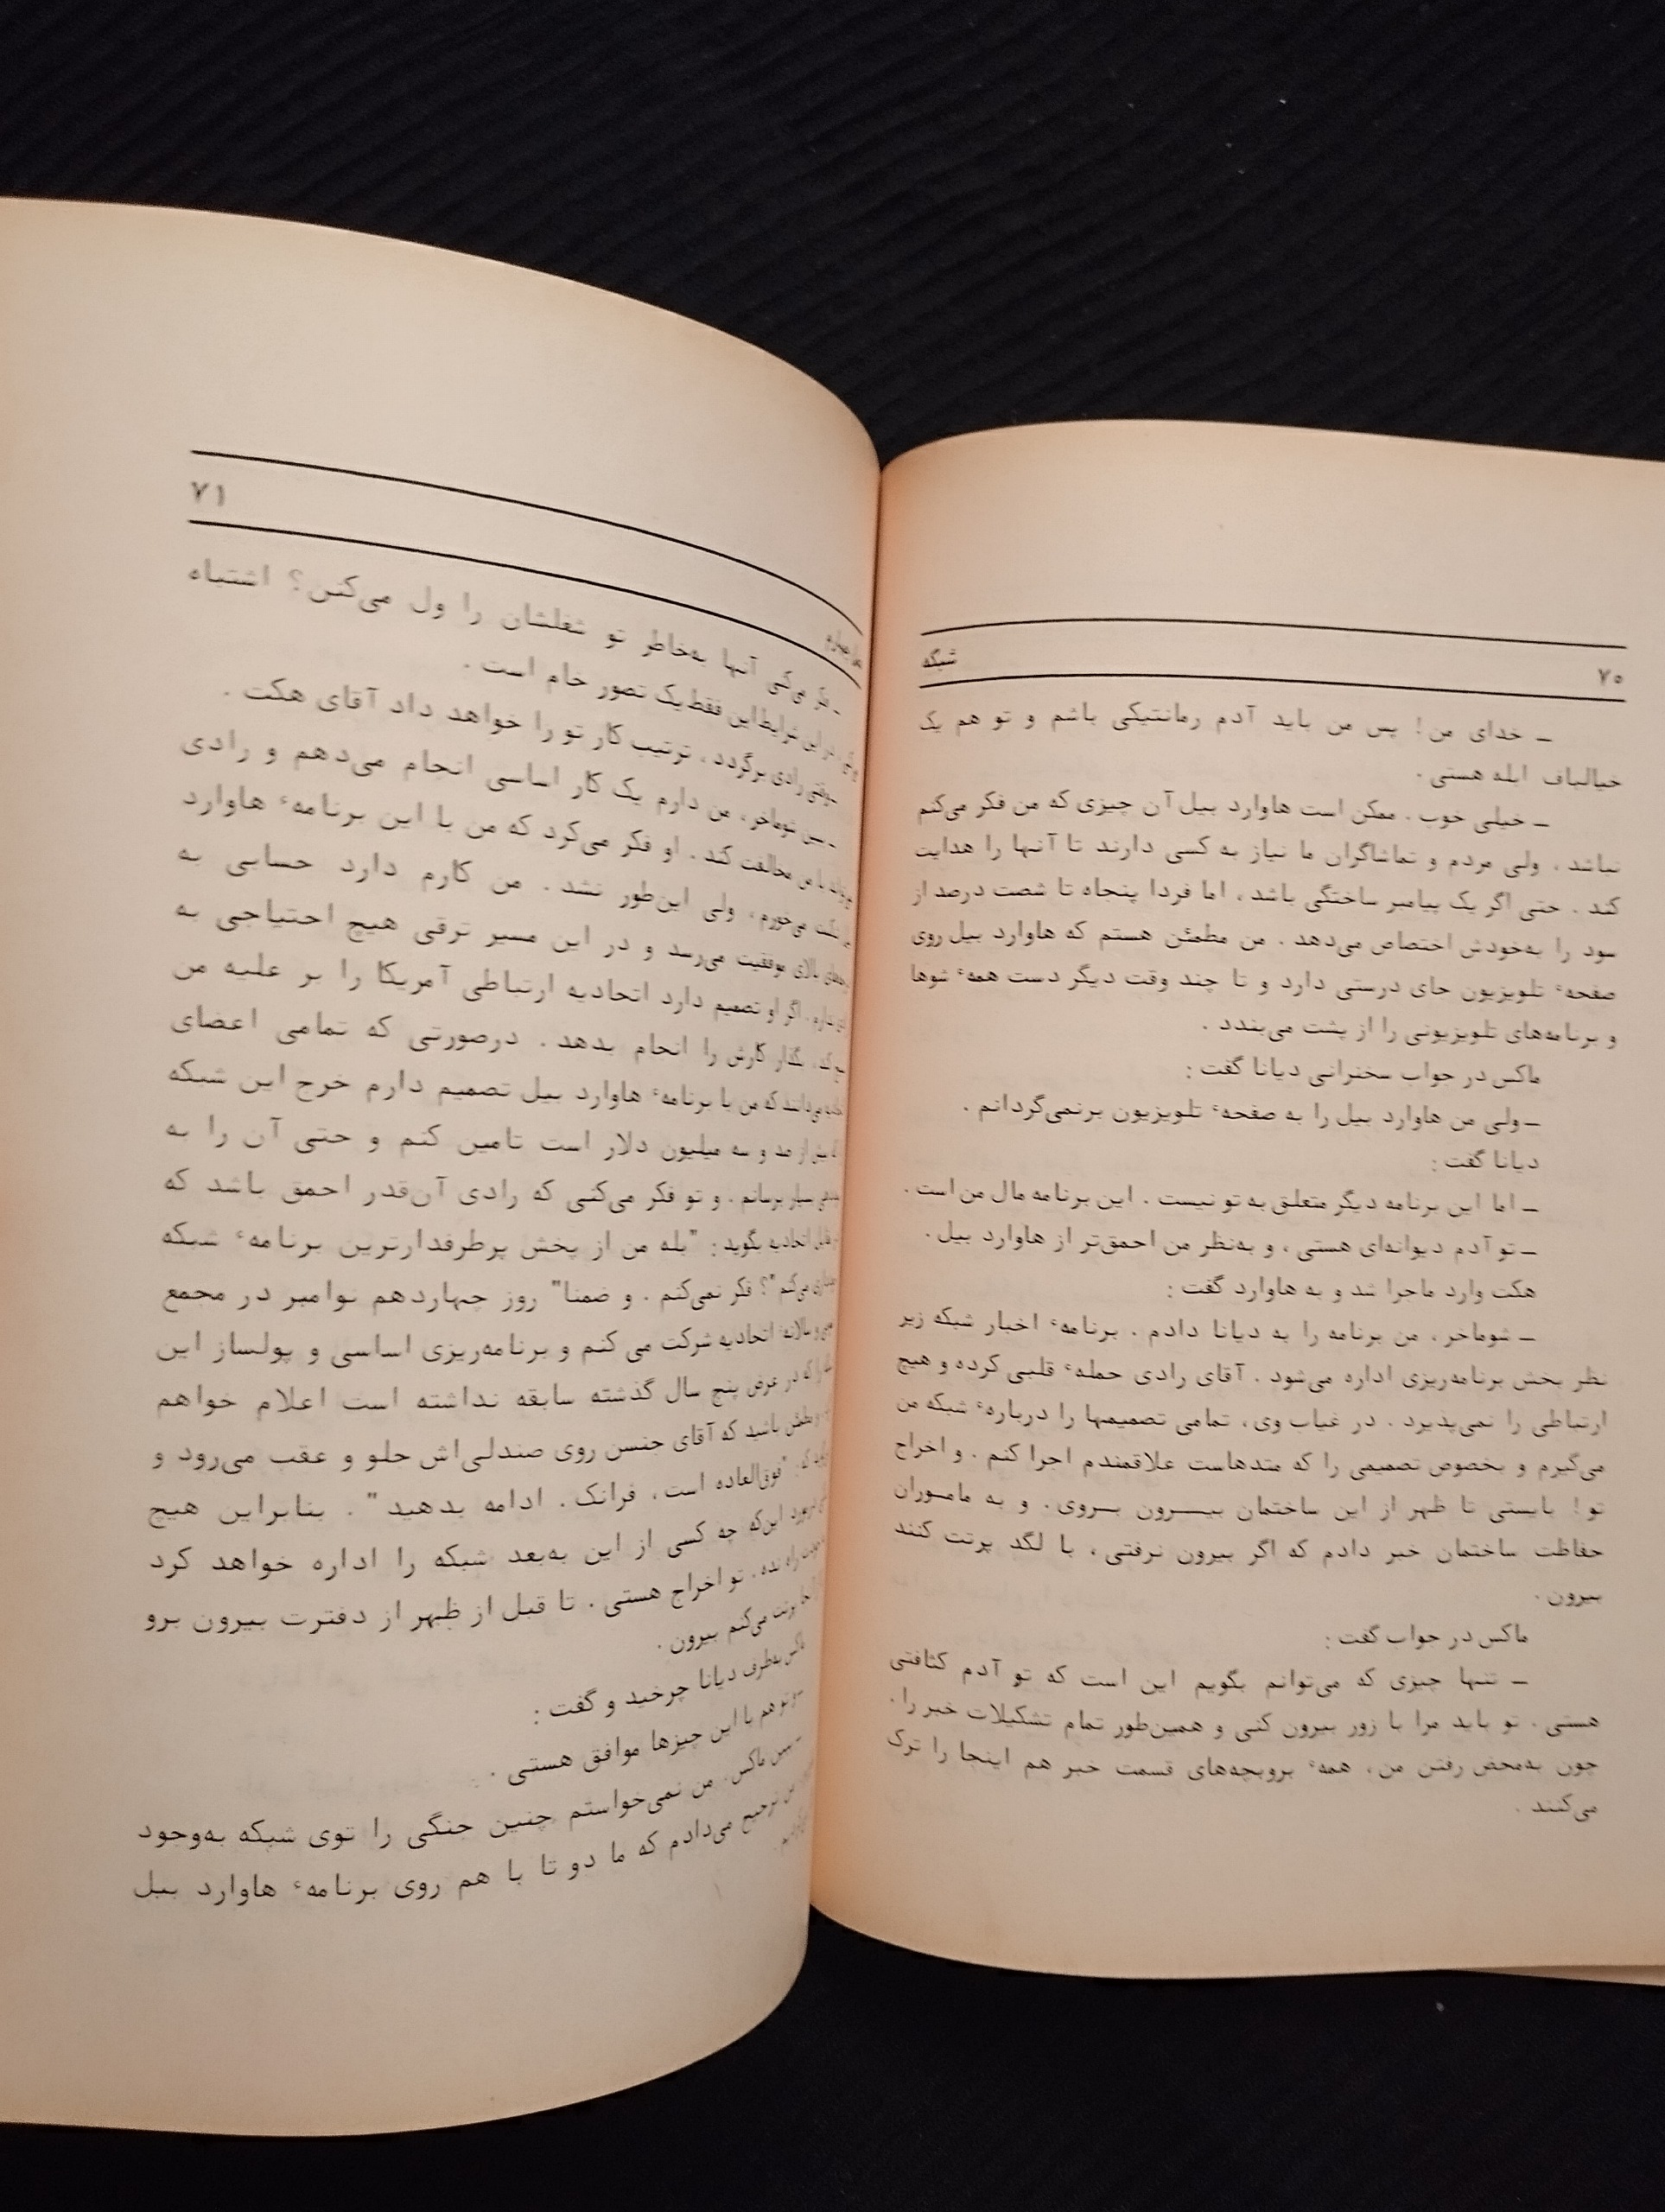 ۷۰
شبکه
ــ خدای من! پس من باید آدم رمانتیکی باشم و تو هم یک
خیالباف ابله هستی.
ــ خیلی خوب. ممکن است هاوارد بیل آن چیزی که من فکر می‌کنم
نباشد، ولی مردم و تماشاگران ما نیاز به کسی دارند تا آنها را هدایت
کند. حتی اگر یک پیامبر ساختگی باشد، اما فردا پنجاه تا شصت درصد از
سود را به‌خودش اختصاص می‌دهد. من مطمئن هستم که هاوارد بیل روی
صفحهٔ تلویزیون جای درستی دارد و تا چند وقت دیگر دست همهٔ شوها
و برنامه‌های تلویزیونی را از پشت می‌بندد.
ماکس در جواب سخنرانی دیانا گفت:
ــ ولی من هاوارد بیل را به صفحهٔ تلویزیون برنمی‌گردانم.
دیانا گفت:
ــ اما این برنامه دیگر متعلق به تو نیست. این برنامه مال من است.
ــ تو آدم دیوانه‌ای هستی، و به‌نظر من احمق‌تر از هاوارد بیل.
هکت وارد ماجرا شد و به هاوارد گفت:
ــ شوماخر، من برنامه را به دیانا دادم. برنامهٔ اخبار شبکه زیر
نظر بخش برنامه‌ریزی اداره می‌شود. آقای رادی حملهٔ قلبی کرده و هیچ
ارتباطی را نمی‌پذیرد. در غیاب وی، تمامی تصمیمها را دربارهٔ شبکه من
می‌گیرم و بخصوص تصمیمی را که مدتهاست علاقمندم اجرا کنم. و اخراج
تو! بایستی تا ظهر از این ساختمان بیـــرون بــروی. و به مامـوران
حفاظت ساختمان خبر دادم که اگر بیرون نرفتی، با لگد پرتت کنند
بیرون.
ماکس در جواب گفت:
ــ تنها چیزی که می‌توانم بگویم این است که تو آدم کثافتی
هستی. تو باید مرا با زور بیرون کنی و همین‌طور تمام تشکیلات خبر را.
چون به‌محض رفتن من، همهٔ بروبچه‌های قسمت خبر هم اینجا را ترک
می‌کنند.
چهارم
۷۱
ــ فکر می‌کنی آنها به‌خاطر تو شغلشان را ول می‌کنن؟ اشتباه
در این شرایط این فقط یک تصور خام است.
وقتی رادی برگردد، ترتیب کار تو را خواهد داد آقای هکت.
ــ ببین شوماخر، من دارم یک کار اساسی انجام می‌دهم و رادی
با من مخالفت کند. او فکر می‌کرد که من با این برنامهٔ هاوارد
شکست می‌خورم، ولی این‌طور نشد. من کارم دارد حسابی به
بالای موفقیت می‌رسد و در این مسیر ترقی هیچ احتیاجی به
ندارم. اگر او تصمیم دارد اتحادیه ارتباطی آمریکا را بر علیه من
کند، بگذار کارش را انجام بدهد. درصورتی که تمامی اعضای
می‌دانند که من با برنامهٔ هاوارد بیل تصمیم دارم خرج این شبکه
بیش از صد و سه میلیون دلار است تامین کنم و حتی آن را به
بسیار برسانم. و تو فکر می‌کنی که رادی آن‌قدر احمق باشد که
اتحادیه بگوید: "بله من از پخش پرطرفدارترین برنامهٔ شبکه
می‌کنم"؟ فکر نمی‌کنم. و ضمنا" روز چهاردهم نوامبر در مجمع
سالانهٔ اتحادیه شرکت می کنم و برنامه‌ریزی اساسی و پولساز این
را که در عرض پنج سال گذشته سابقه نداشته است اعلام خواهم
مطمئن باشید که آقای جنسن روی صندلی‌اش جلو و عقب می‌رود و
"فوق‌العاده است، فرانک. ادامه بدهید". بنابراین هیچ
این‌که چه کسی از این به‌بعد شبکه را اداره خواهد کرد
راه نده. تو اخراج هستی. تا قبل از ظهر از دفترت بیرون برو
پرتت می‌کنم بیرون.
ماکس به‌طرف دیانا چرخید و گفت:
تو هم با این چیزها موافق هستی.
ــ ببین ماکس. من نمی‌خواستم چنین جنگی را توی شبکه به‌وجود
من ترجیح می‌دادم که ما دو تا با هم روی برنامهٔ هاوارد بیل